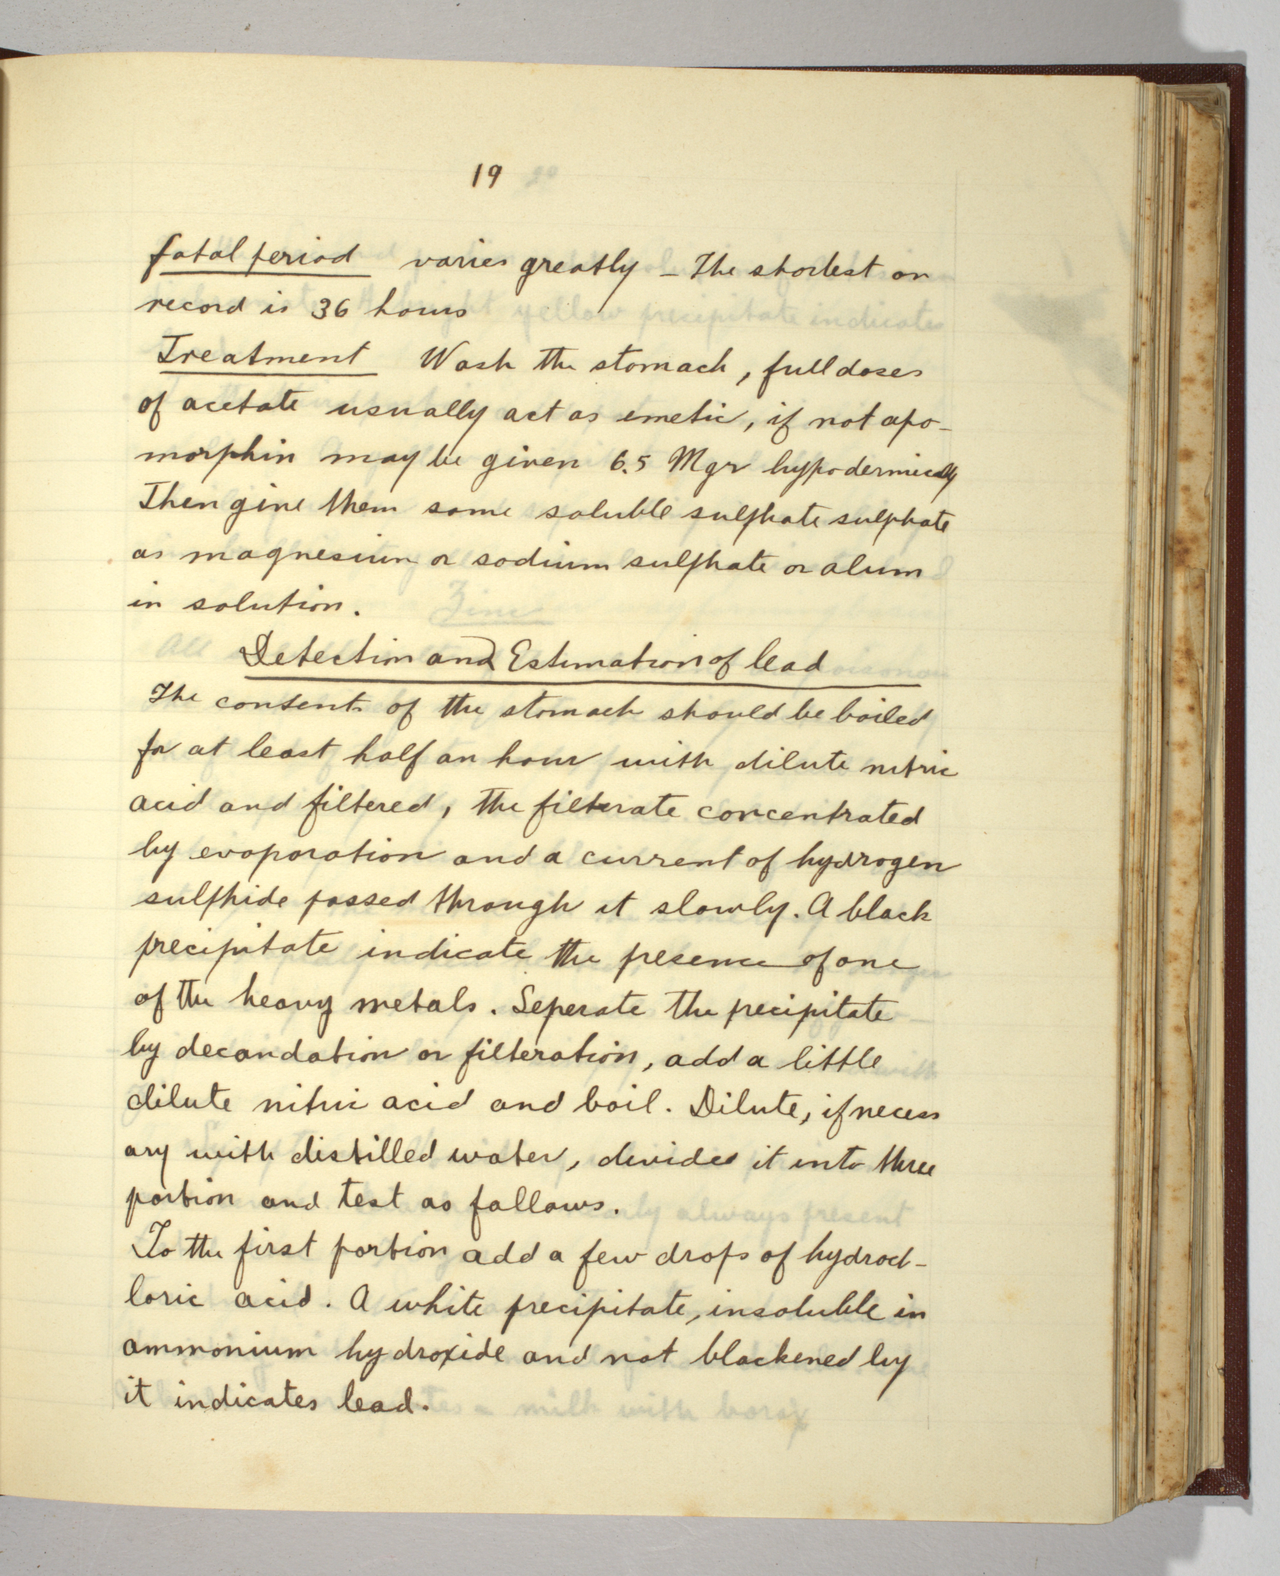 19
fatal period varies greatly - The shortest on
record is 36 hours
Treatment Wash the stomach, full doses
of acetate usually act as emetic, if not apo-
morphin may be given 6.5 Mgr hypodermically
Then give them some soluble sulphate sulphate
as magnesium or sodium sulphate or alum
in solution.
Detection and Estimation of lead
The contents of the stomach should be boiled
for at least half an hour with dilute nitric
acid and filtered, the filterate concentrated
by evaporation and a current of hydrogen
sulphide passed through it slowly. A black
precipitate indicate the presence of one
of the heavy metals. Seperate the precipitate
by decandation or filteration, add a little
dilute nitric acid and boil. Dilute, if necess
ary with distilled water, divides it into three
portion and test as follows.
To the first portion add a few drops of hydroch-
loric acid. A white precipitate, insoluble in
ammonium hydroxide and not blackened by
it indicates lead.